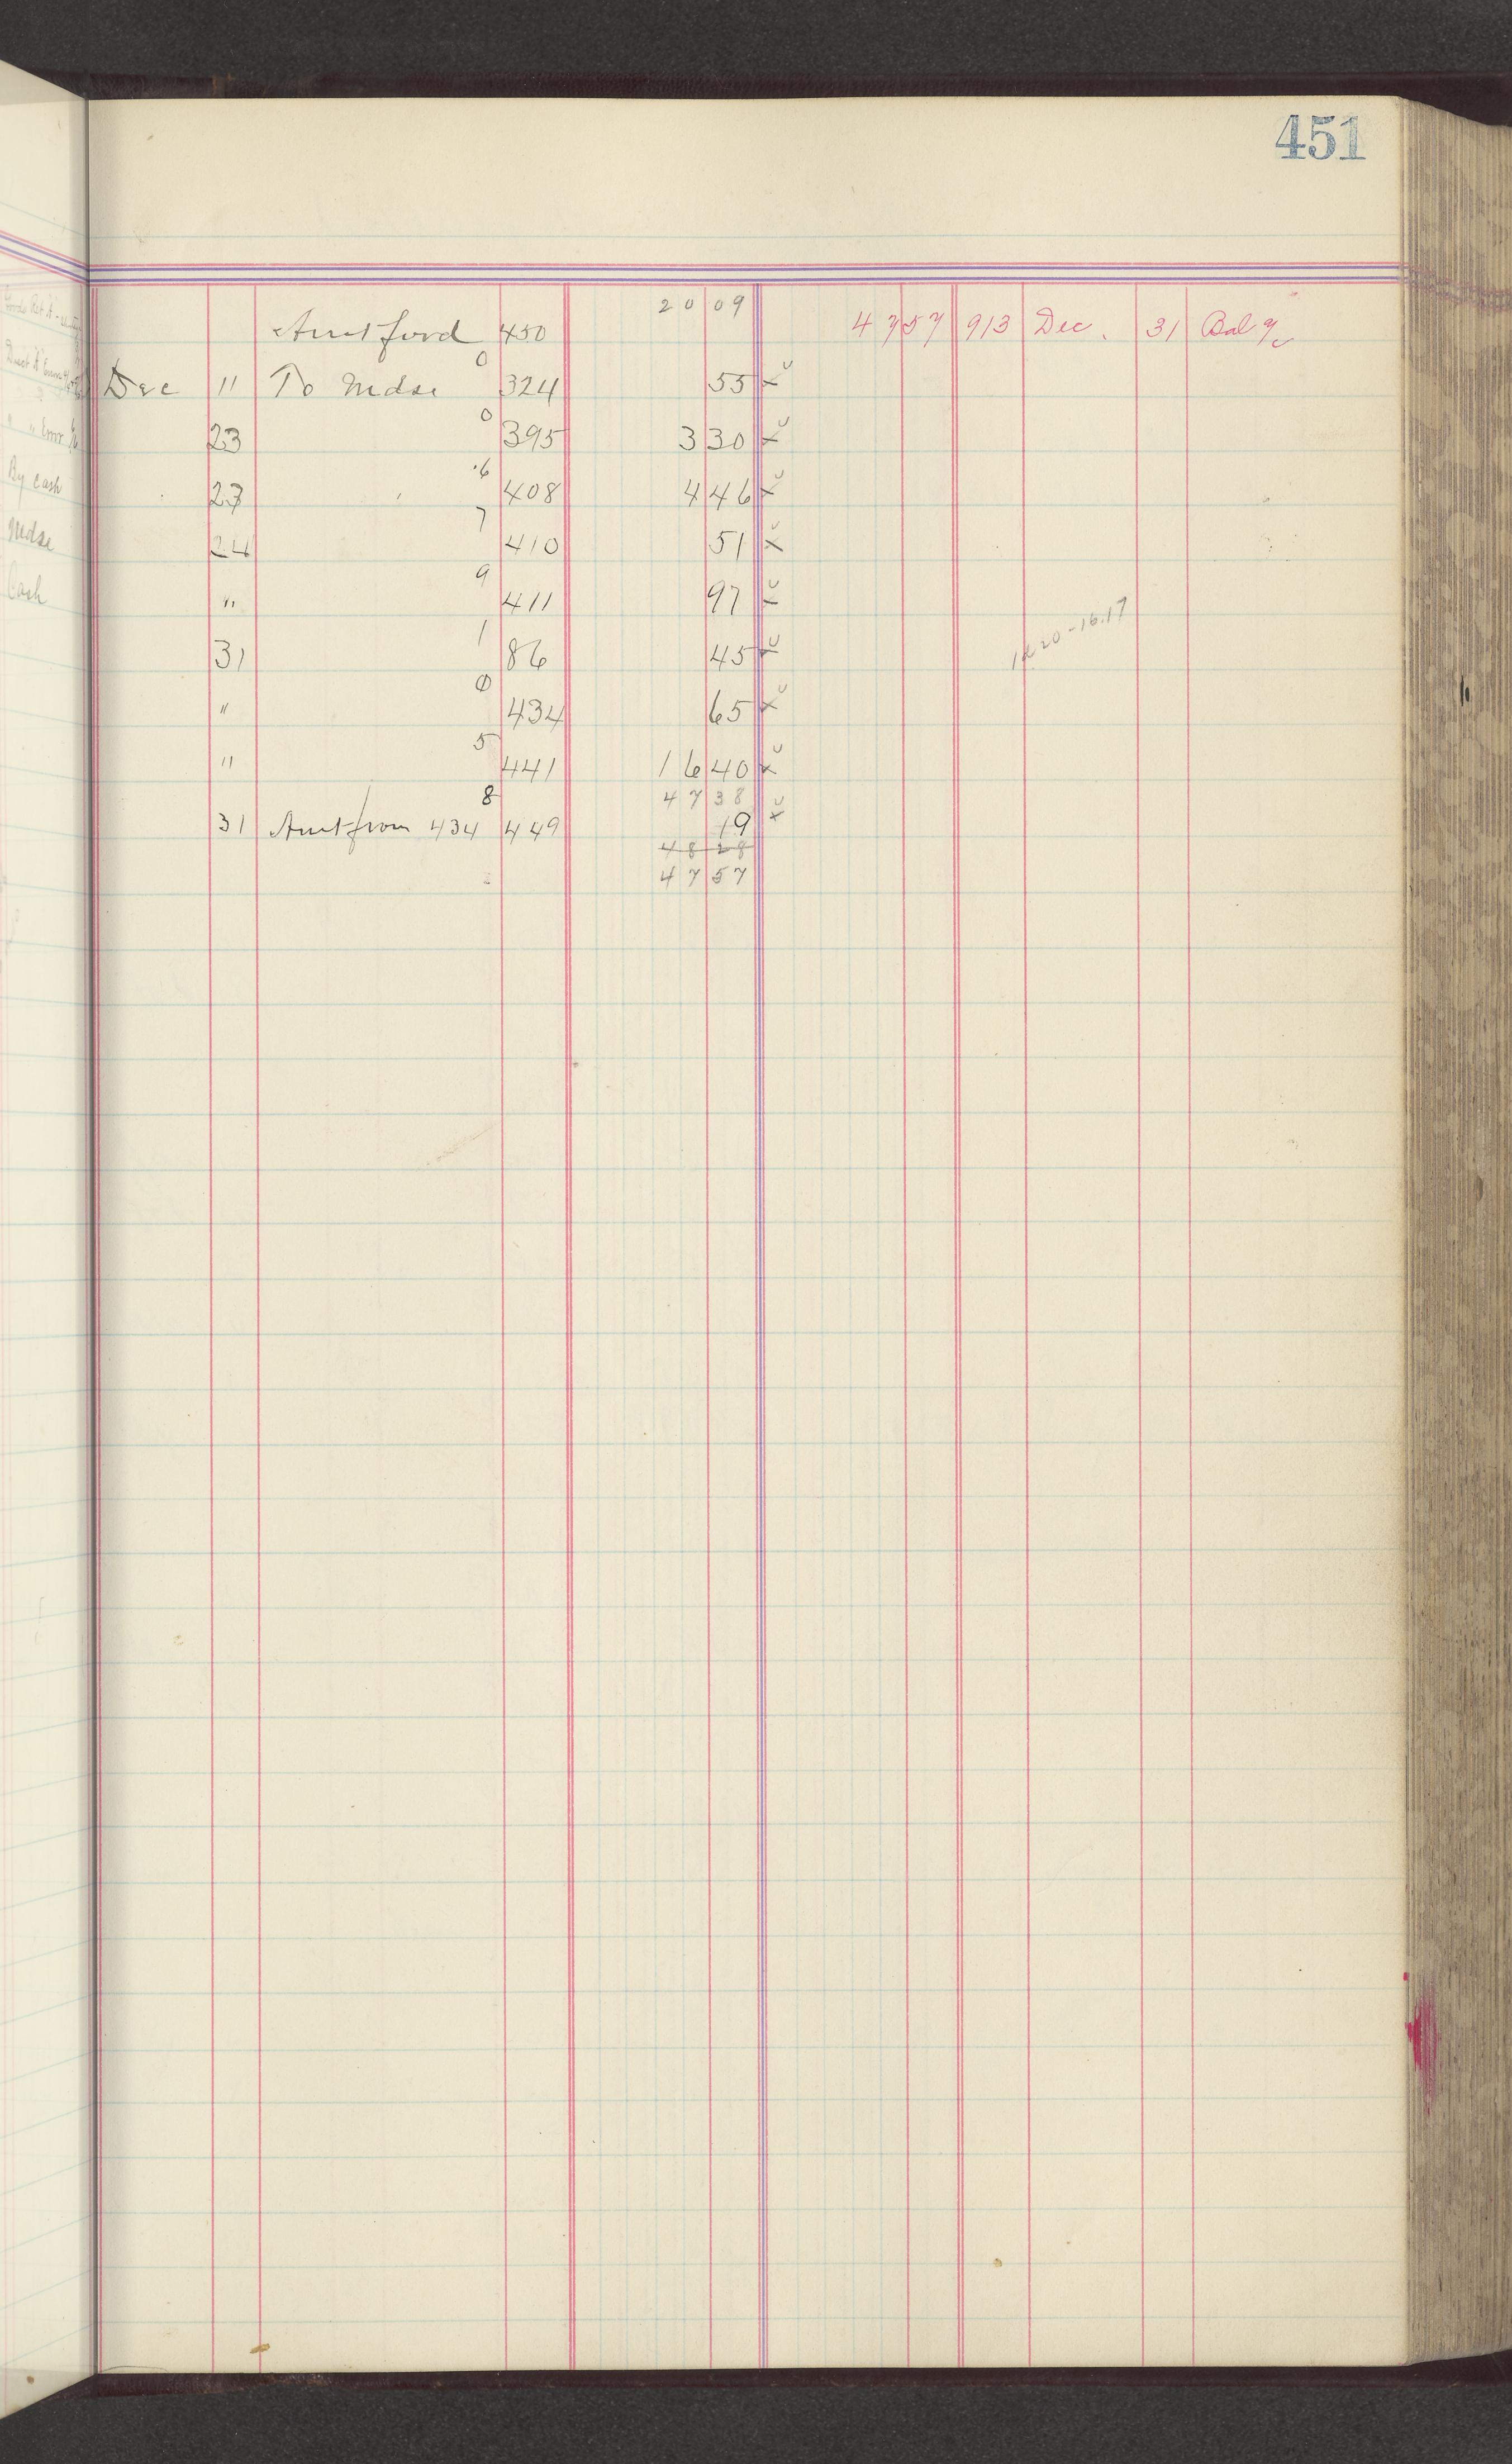 451
20 09
Amt ford 450 47 57 913 Dec. 31 Bal
0
Dec 11 To Mdse 324 55 x
0
23 395 3 30 x
6
23 408 4 46 x
7
24 410 51 x
9
" 411 97 x
1
31 86 45 x
0
" 434 65 x
5
" 441 16 40 x
8 47 38
31 Amt from 434 449 19 x
48 28
47 57
20-16.17
By cash
Mdse
Cash